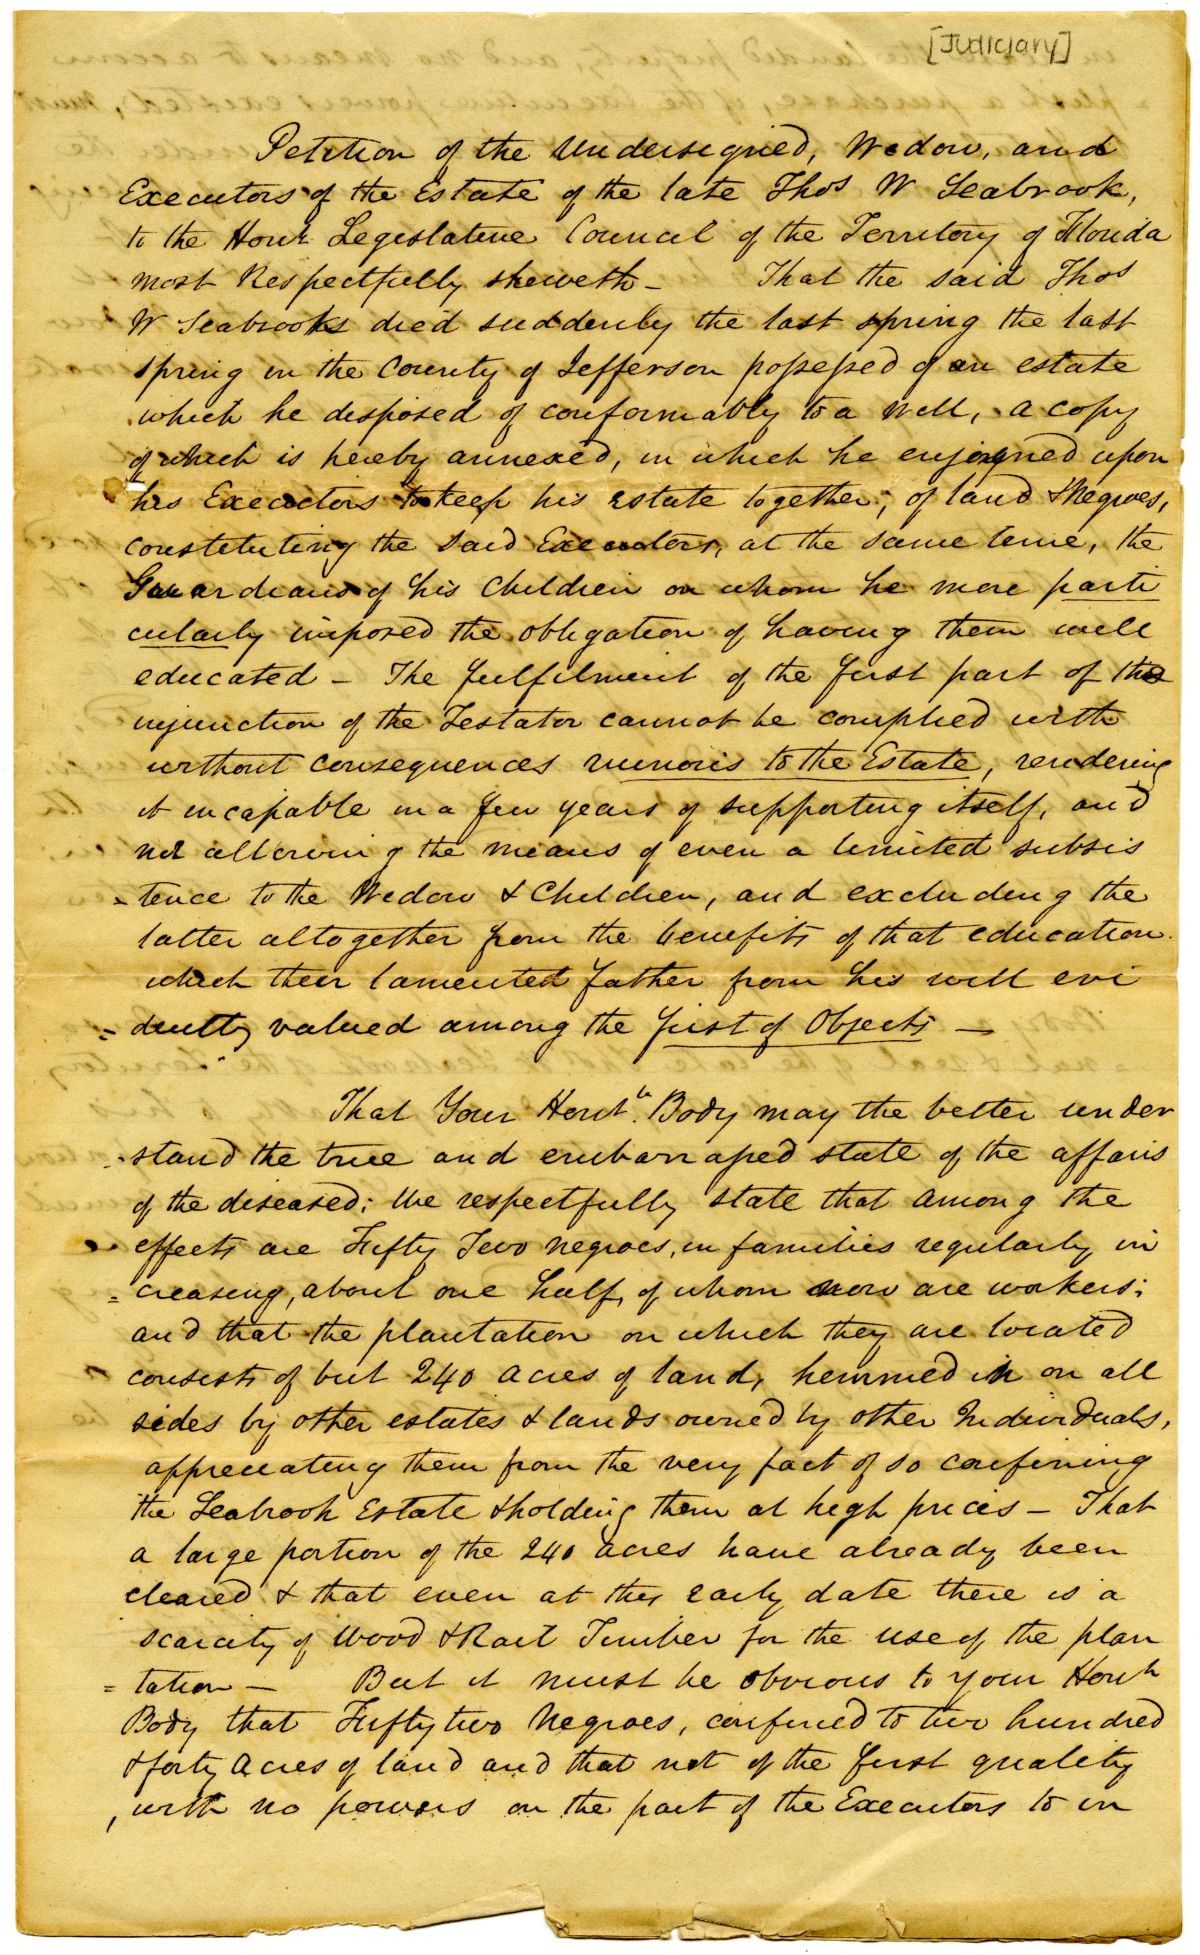 [Judiciary]
Petition of the Undersigned, Widow, and
Executors of the Estate of the late Thos W Seabrook,
to the Honle Legislative Council of the Territory of Florida
most Respectfully sheweth – That the said Thos
W Seabrooks died suddenly the last spring the last
spring in the County of Jefferson possessed of an estate
which he disposed of conformably to a Will, a copy
of which is hereby annexed, in which he enjoyned upon
his Executors to keep his Estate together, of land & Negroes,
constituting the said Executors, at the same time, the
Guardians of his Children on whom he more parti
cularly imposed the obligation of having them well
educated – The fulfilment of the first part of this
injunction of the Testator cannot be complied with
without consequences ruinous to the Estate, rendering
it incapable in a few years of supporting itself, and
not allowing the means of even a limited subsis
=tence to the Widow & Children, and excluding the
latter altogether from the benefits of that education
which their lamented father from his will evi
=dently valued among the first of Objects –
That Your Honble. Body may the better under
stand the true and embarrassed state of the affairs
of the diseased: We respectfully state that among the
effects are Fifty Two negroes, in families regularly in
=creasing, about one half, of whom now are workers;
and that the plantation on which they are located
consists of but 240 acres of land, hemmed in on all
sides by other estates & lands owned by other Individuals,
appreciating them from the very fact of so confining
the Seabrook Estate & holding them at high prices – That
a large portion of the 240 acres have already been
cleared & that even at this early date there is a
scarcity of Wood & Rail Timber for the use of the plan
=tation – But it must be obvious to your Honle
Body that Fifty two Negroes, confined to two hundred
& forty Acres of land and that not of the first quality
, with no powers on the part of the Executors to in